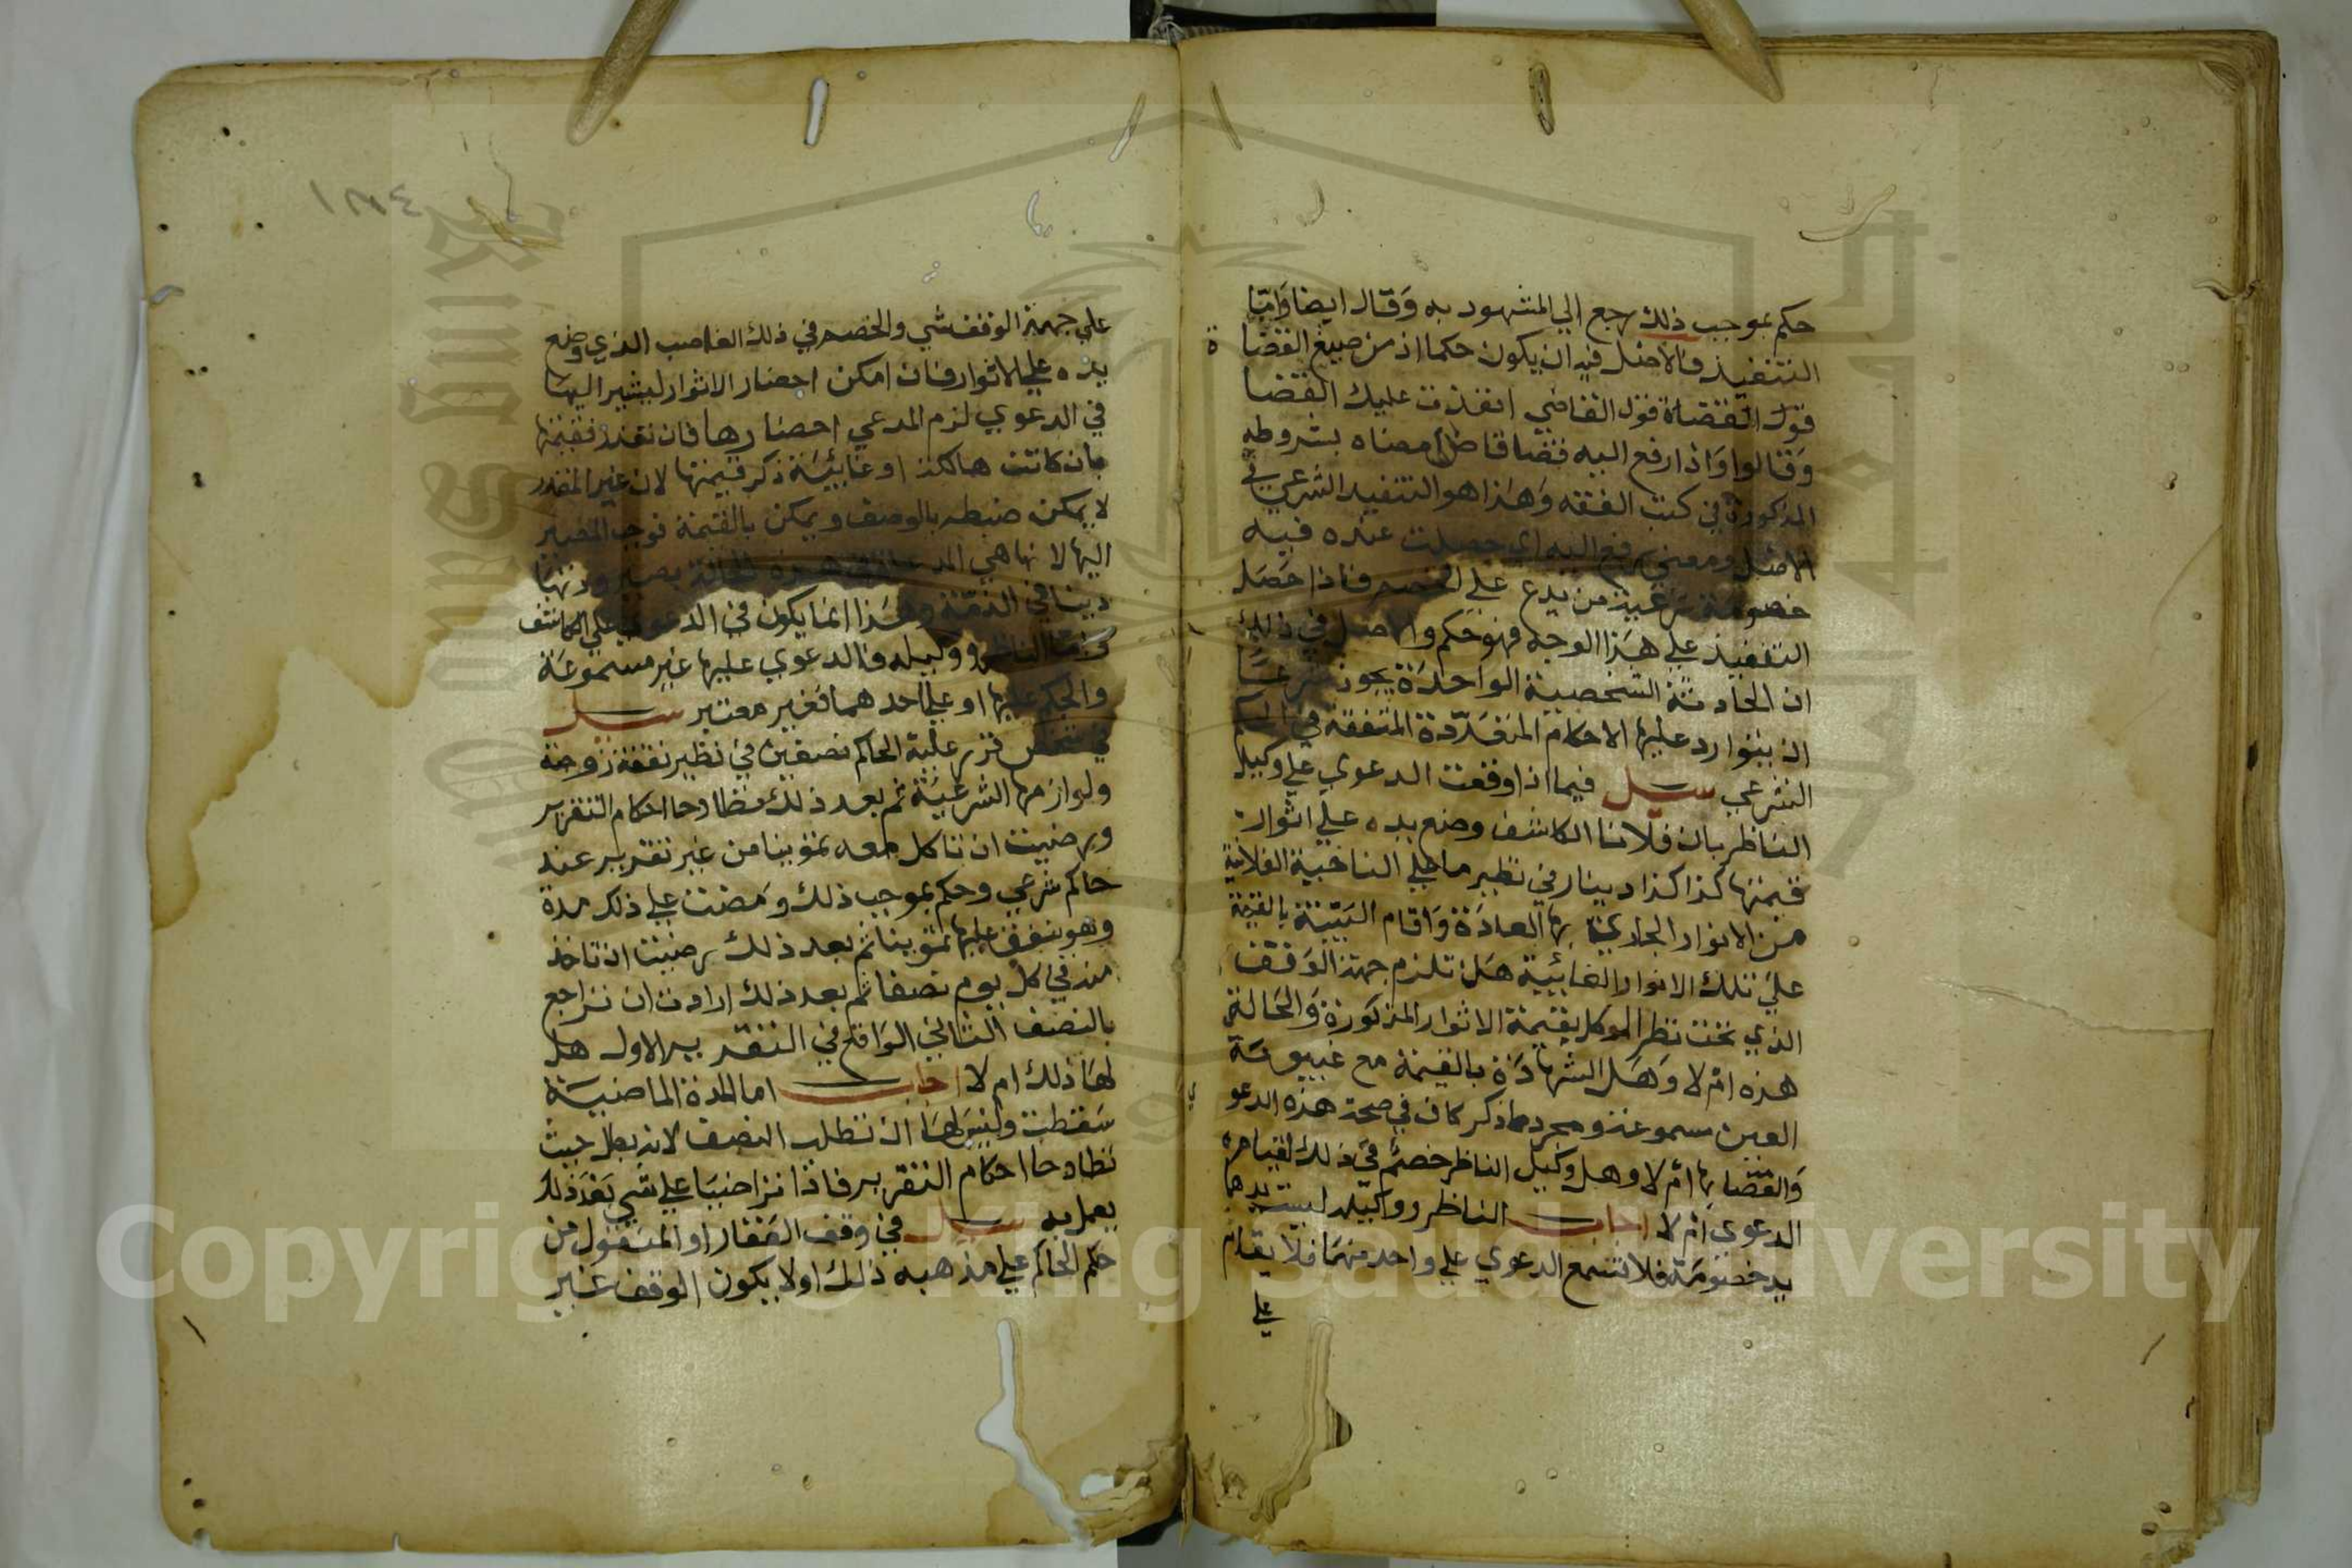 حكم بموجب ذلك رجع الي المشهود به وقال ايضا وامّا
التنفيذ فالاصل فيه ان يكون حكما اذ من صيغ القضا
ة
قول القضاة قول القاضي انفذت عليك القضا
وقالوا واذا رفع اليه قضا قاض امضاه بشروطه
المذكورة في كتب الفقه وهذا هو التنفيذ الشرعي في
الاصل ومعني رفع اليه اي حصلت عنده فيه
خصومة شرعية من مدع علي الخصم فاذا حصل
التنفيذ علي هذا الوجه فهو حكم والاصل في ذلك
ان الحادثة الشخصية الواحدة يجوز شرعا
ان يتوارد عليها الاحكام المتعددة المتفقة في الحكم
الشرعي سيل فيما اذا وقعت الدعوي علي وكيل
الناظر بان فلانا الكاشف وضع يده علي اثوار
قيمتها كذا كذا دينار في نظير ما علي الناحية الفلانية
من الاثوار الجاري بها العادة واقام البيّنة بالقيمة
علي تلك الاثوار الغائبة هل تلزم جهة الوقف
الذي تحت نظر الموكل بقيمة الاثوار المذكورة والحالة
هذه ام لا وهل الشهادة بالقيمة مع غيبوبة
العين مسموعة ومجرد ما ذكر كاف في صحة هذه الدعو
ي
والقضا بها ام لا وهل وكيل الناظر خصم في ذلك
الدعوي ام لا اجاب الناظر ووكيله ليست يدهما
يد خصومة فلا تسمع الدعوي علي واحد منهما فلا يقدم
علي
علي جهة الوقف شي والخصم في ذلك الغاصب الذي وضع
يده علي الاثوار فان امكن احضار الاثوار ليشير اليها
في الدعوي لزم المدعي احضارها فان تعذر فقيمتها
بان كانت هالكة او غايبة ذكر قيمتها لان غير المقدر
لا يمكن ضبطه بالوصف ويمكن بالقيمة فوجب المصير
اليها لانها هي المدعاة في هذه الحالة
دينا في الذمة وهذا انما يكون في الدعوي علي الكاشف
وامّا الناظر ووكيله فالدعوي عليها غير مسموعة
والحكم عليها او علي احدهما فغير معتبر سيل
في شخص قرر عليه الحاكم نصفين في نظير نفقة زوجة
ولوازمها الشرعية ثم بعد ذلك تظادحا احكام التقرير
ورضيت ان تاكل معه تموينا من غير تقرير عند
حاكم شرعي وحكم بموجب ذلك ومضت علي ذلك مدة
وهو ينفق عليها تموينا ثم بعد ذلك رضيت ان تاخذ
منه في كل يوم نصفا ثم بعد ذلك ارادت ان تراجع
بالنصف الثاني الواقع في التقرير الاول هل
لها ذلك ام لا اجاب اما المدة الماضية
سقطت وليس لها ان تطلب النصف لانه بطل حيث
تظادحا احكام التقرير فاذا تراضيا علي شي بعد ذلك
يعمل به سيل في وقف العقار او المنقول من
حكم الحاكم علي مذهبه ذلك اولا يكون الوقف غير